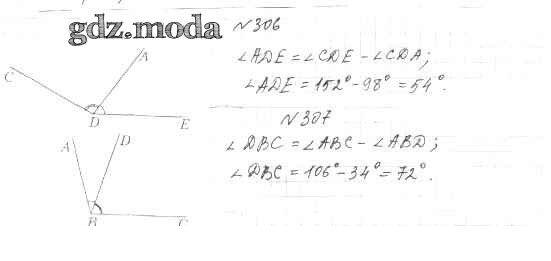 gdz.moda
N306
∠ADE = ∠CDE - ∠CDA;
∠ADE = 152° - 98° = 54°.
N307
∠DBC = ∠ABC - ∠ABD;
∠DBC = 106° - 34° = 72°.
A
C
D
E
A
D
B
C